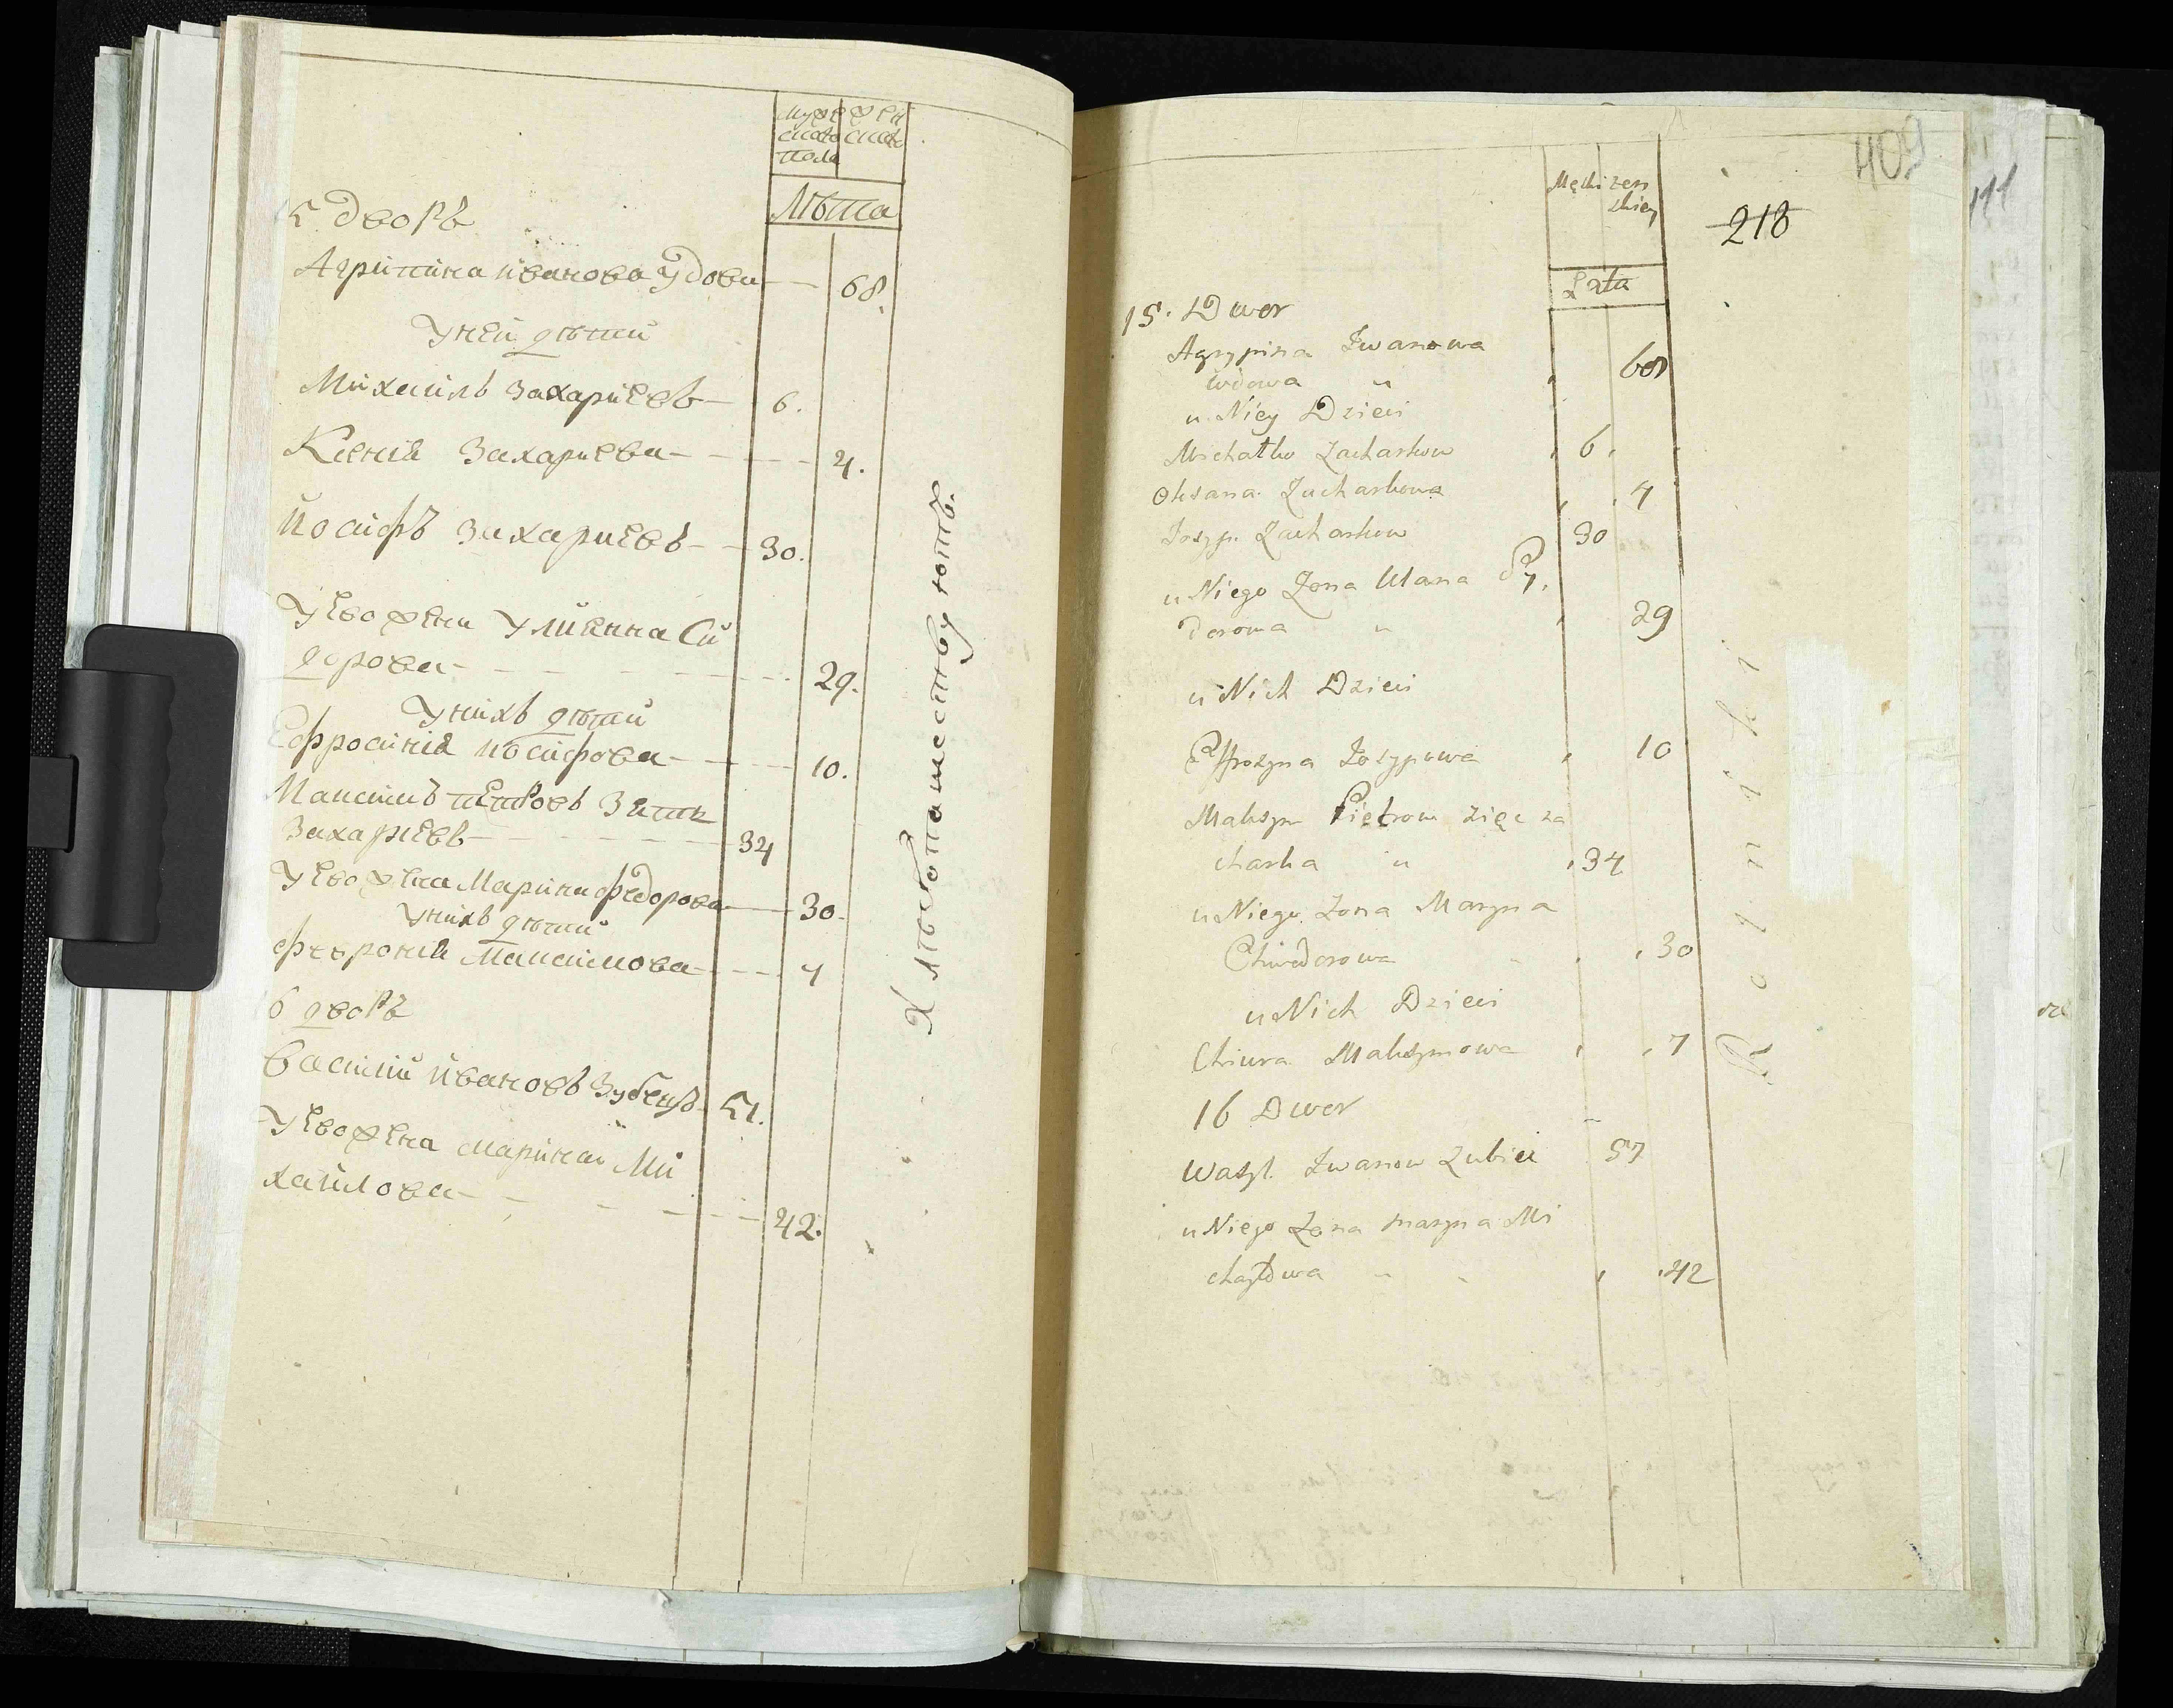 Мужe жен
ско скаго
пола
Лѣта
5 дворъ
Агрипина Иванова Удова 68.
У неи дѣти
Михаилъ Захариевъ 6.
Ксения Захариева 4.
Иосифъ Захариевъ 30.
У ево жены Улиянна Си
дорова 29.
У нихъ дѣти
Ефросиния Иосифова 10.
Максимъ Петровъ Зять
Захариевъ 34
У ево жена Марина Федорова 30.
У нихъ дѣти
Феврония Максимова 7
6 дворъ
Василий Ивановъ Зубецъ 51.
У ево жена Марина Ми
хайлова 42.
Хлѣбопашествуютъ.
409
111
218
Męski żen
skiey
Lata
15. Dwor
Agrypina Iwanowa
Wdowa 68
u Niey Dzieci
Michałko Zacharkow 6
Oksana Zacharkowa 4
Iozyp Zacharkow 30
u Niego Zona Ulana Sy
dorowa 29
u Nich Dzieci
Effrozyna Iozypowa 10
Maksym Pietrow zięc za
charka 34
u Niego Zona Maryna
Chwedorowa 30
u Nich Dzieci
Chiura Maksymowa 7
16 Dwor
Wasyl Iwanow Zubiec 57
u Niego Zona maryna Mi
chayłowa 42
Rolniki